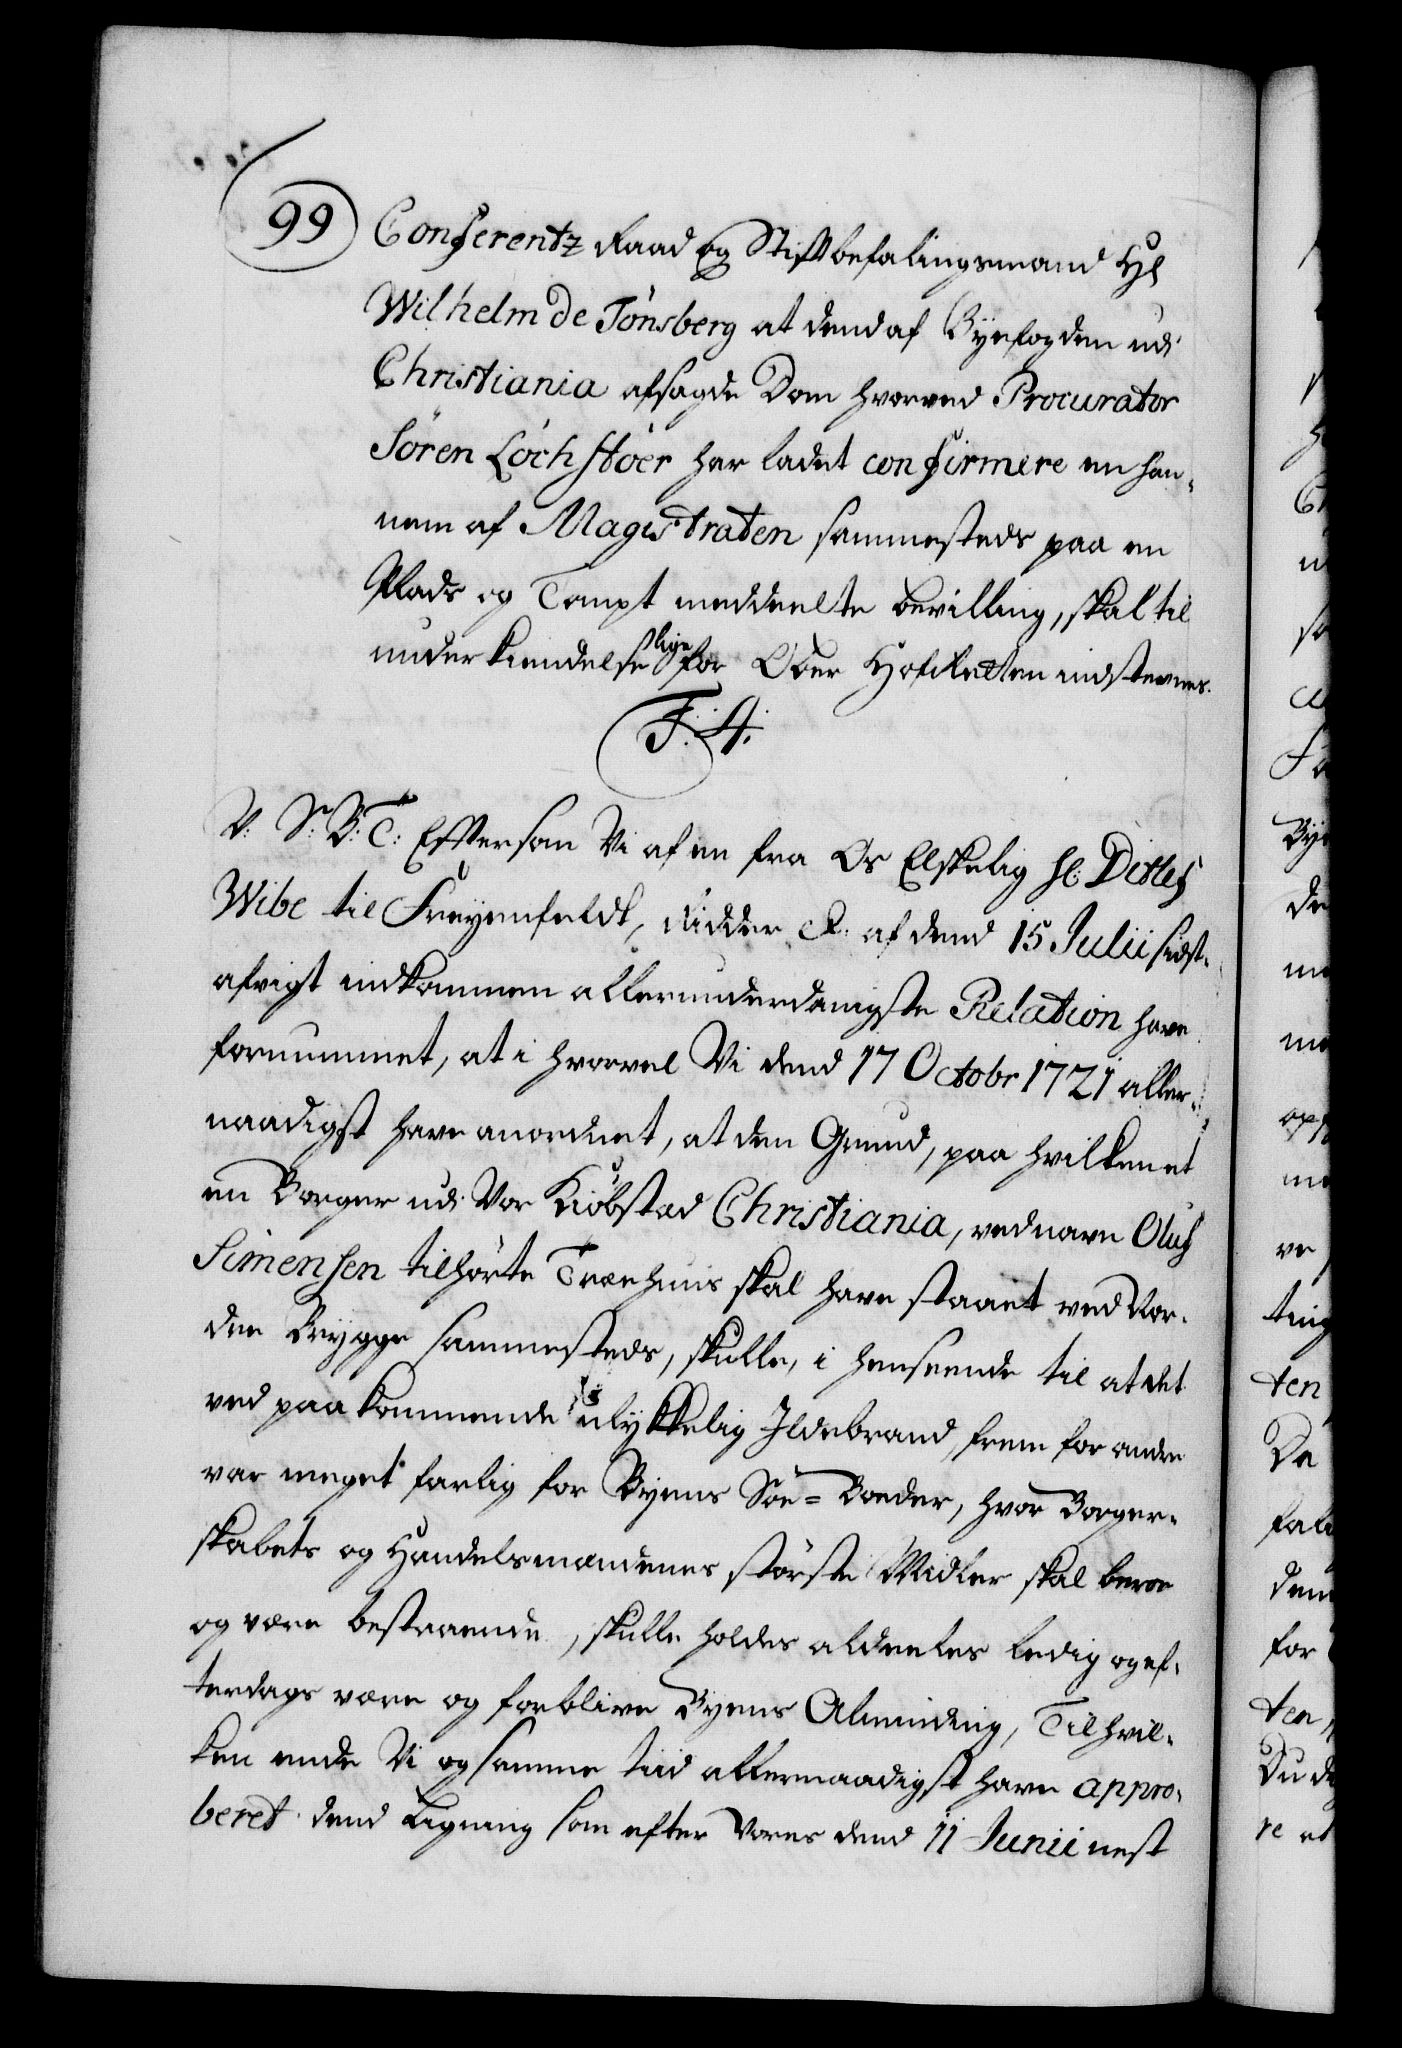 99 Conferentz Raad og Stiftbefalingsmand Hl
Wilhelm de Tönsberg at dend af Byefogden udi
Christiania afsagde Dom hvorved Procurator
Sören Löchstöer har ladet confirmere en han-
nem af Magistraten sammesteds paa en
Plads og Tompt meddeelte bevilling, skal til
underkiendelse lige for Ober HofRetten indstevnes.
F: 4.
V: S: B: T: Eftersom Vi af en fra Os Elskelig Hl: Ditlef
Wibe til Freyenfeldt, Ridder &. af dend 15 Julii sidst-
afvigt indkommen allerunderdanigste Relation have
fornummet, at i hvorvel Vi dend 17 Octobr 1721 aller-
naadigst have anordnet, at den Grund, paa hvilken et
en Borger udi Vor Kiöbstad Christiania, ved navn Oluf
Simensen tilhörte Træehuus skal have staaet ved Nor-
dre Brygge sammesteds, skulle, i henseende til at det
ved paakommende ulykkelig Ildebrand, frem for andre
var meget farlig for Byens Söe=Boeder, hvor Borger-
skabets og Handelsmændenes störste Midler skal beroe
og være bestaaende, skulle holdes aldeeles ledig og ef-
terdags være og forblive Byens Alminding, Til hvil-
ken ende Vi og samme tiid allernaadigst have appro-
beret dend Ligning som efter Vores dend 11 Junii nest